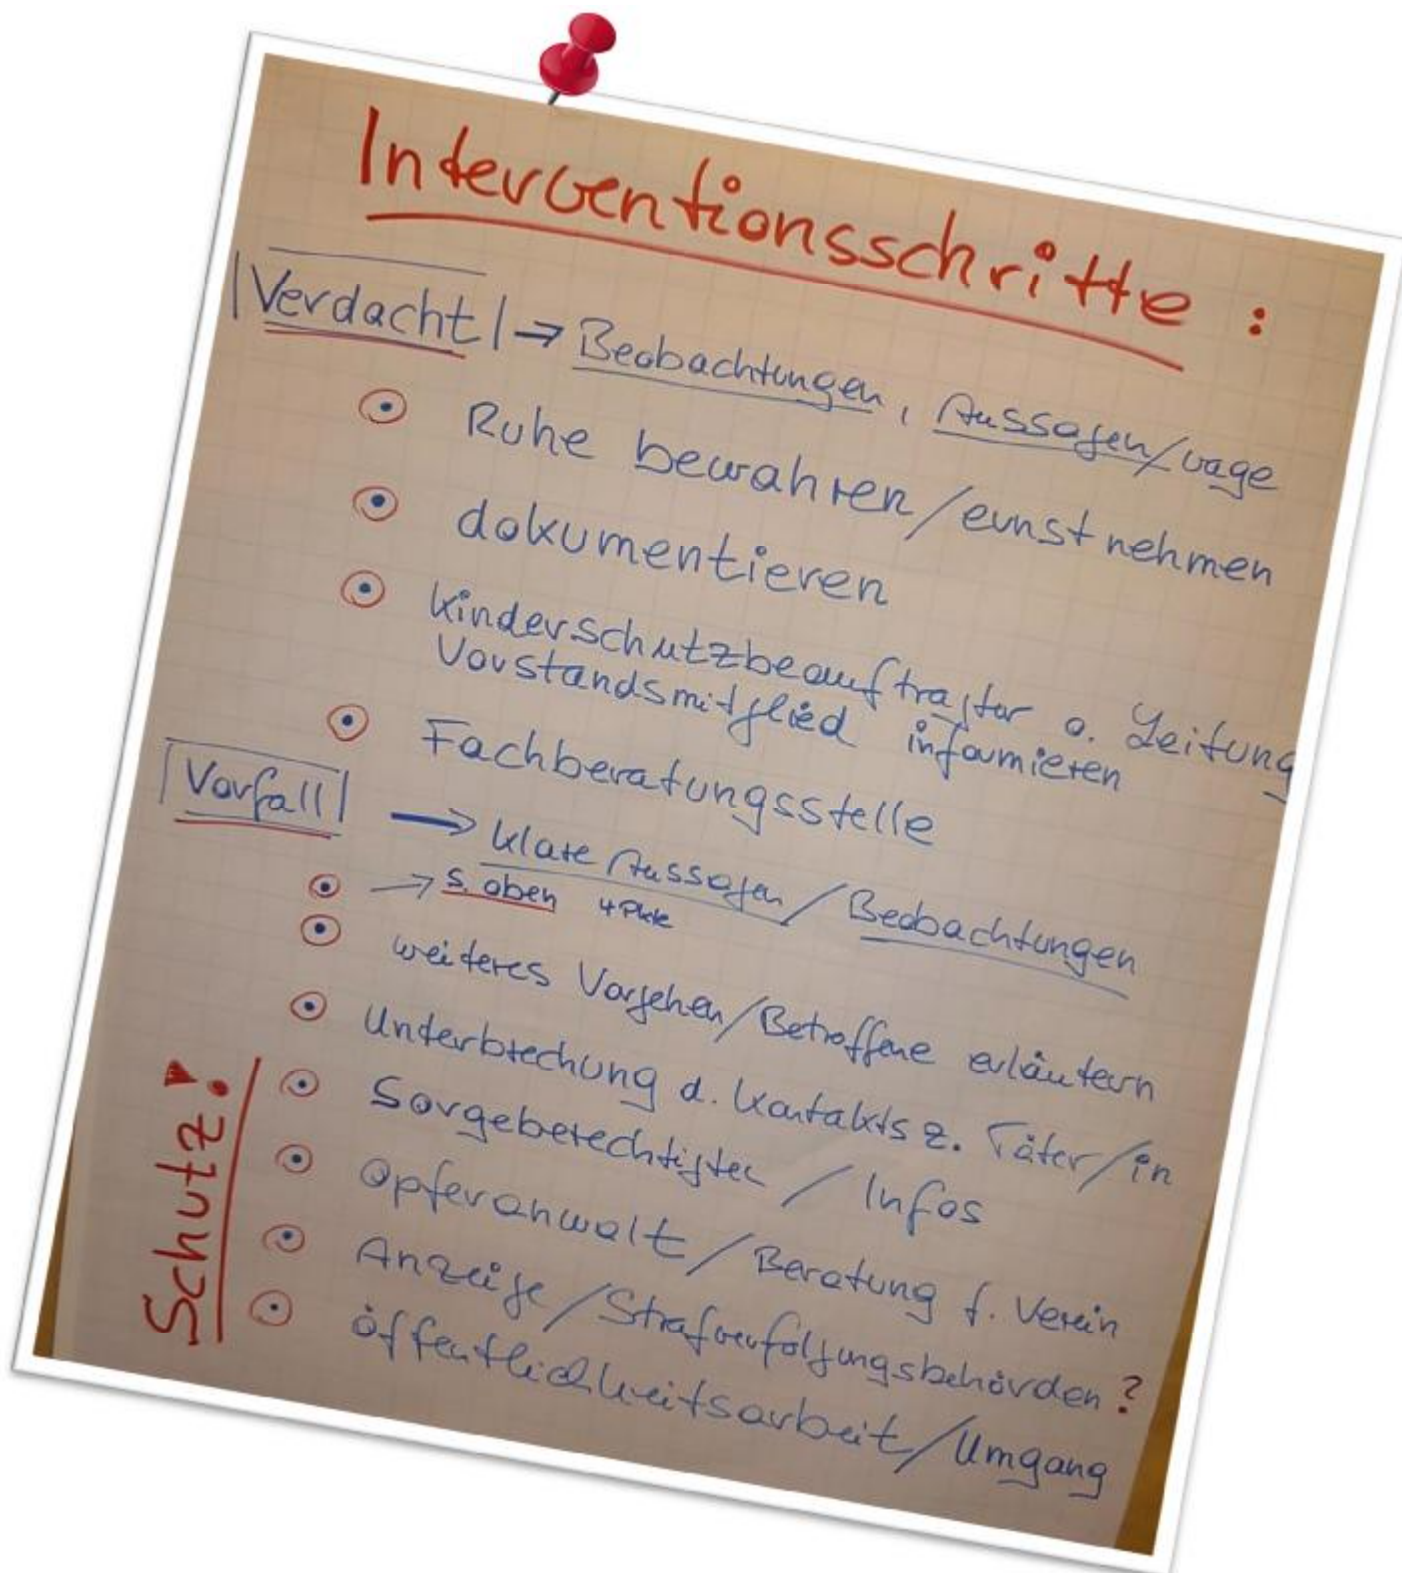 Interventionsschritte:
Verdacht → Beobachtungen, Aussagen/vage
Ruhe bewahren/ernst nehmen
dokumentieren
Kinderschutzbeauftragter o. Leitung
Vorstandsmitglied informieren
Fachberatungsstelle
Vorfall → klare Aussagen/Beobachtungen
→ s. oben 4 Pkte
weiteres Vorgehen/Betroffene erläutern
Unterbrechung d. Kontakts z. Täter/in
Sorgeberechtigten / Infos
Opferanwalt/Beratung f. Verein
Anzeige/Strafverfolgungsbehörden?
öffentlichkeitsarbeit/Umgang
Schutz!